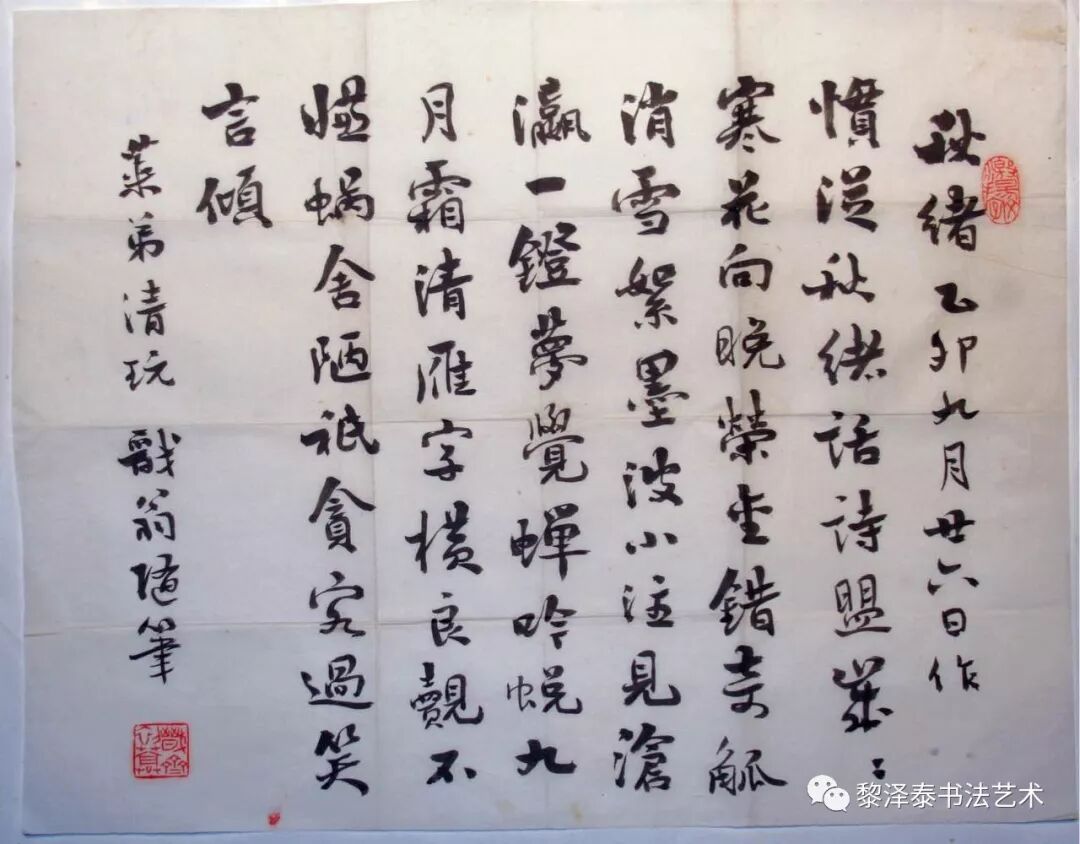 秋緒乙卯九月廿六日作
慣從秋緒話詩盟歲〻
寒花向晚榮坐錯奇觚
消雪絮墨波小注見滄
瀛一鐙夢覺蟬吟蛻九
月霜清雁字橫良覿不
嫌蝸舍陋祇貪客過笑
言傾
弟清玩 戩翁隨筆
黎泽泰书法艺术